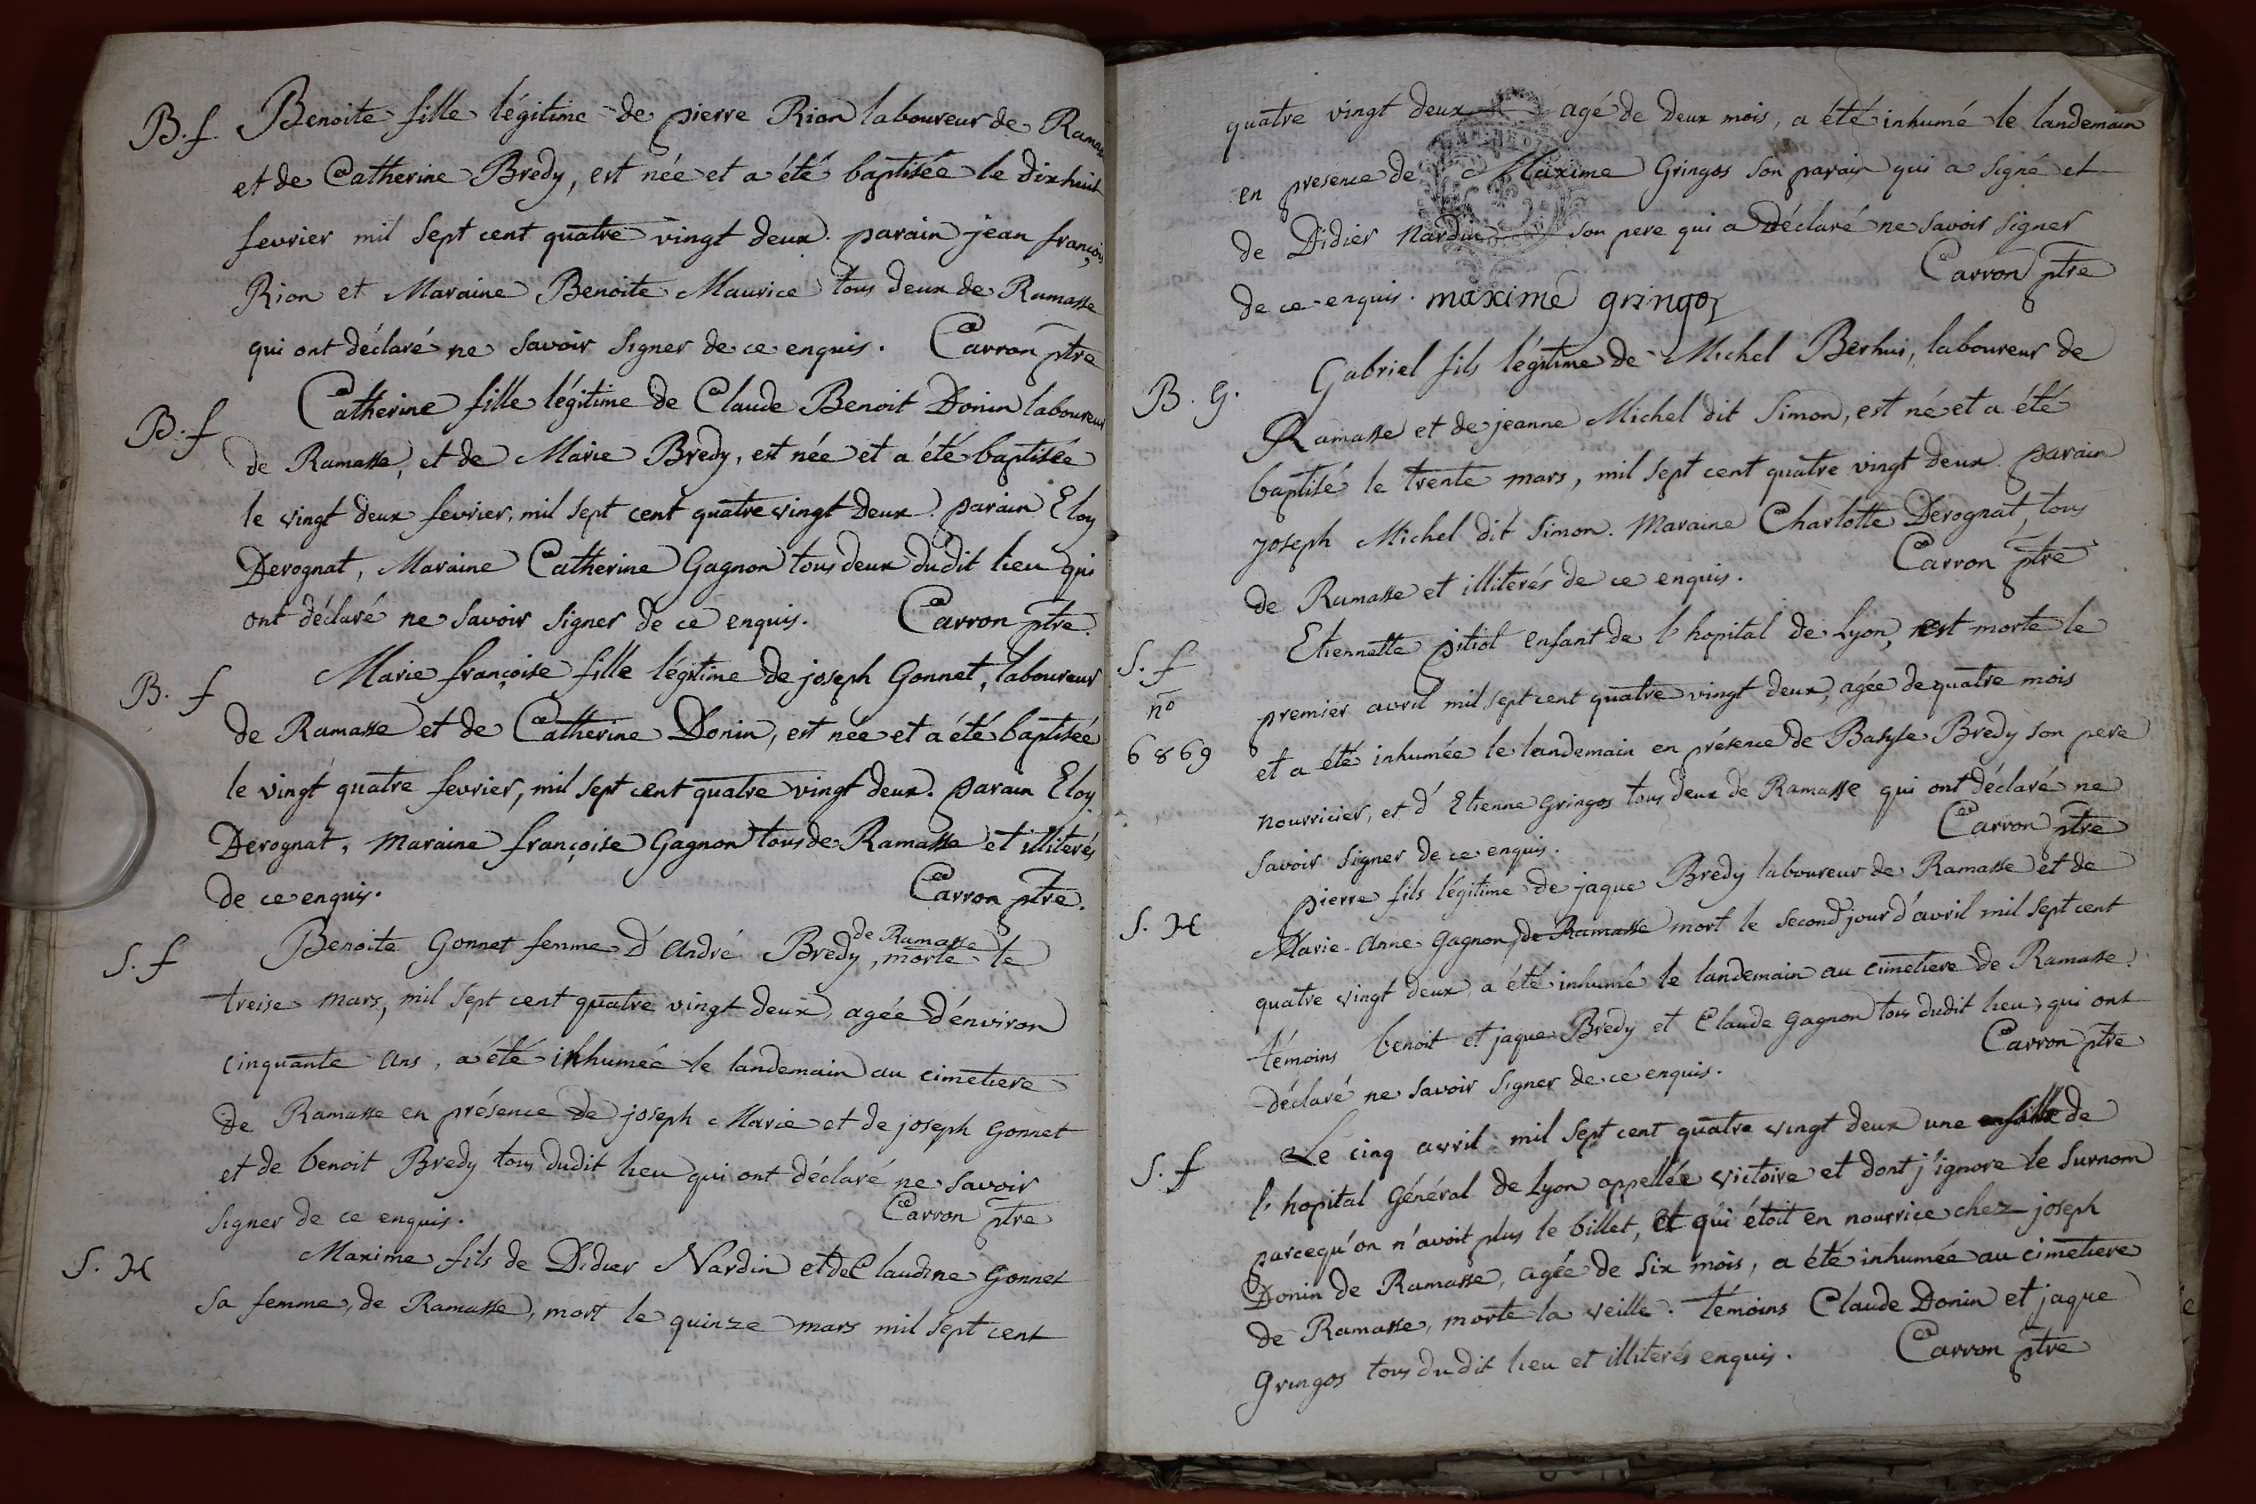 B. f Benoite fille légitime de pierre Rion laboureur de Ramasse
et de Catherine Bredy, est née et a été baptisée le dixhuit
fevrier mil sept cent quatre vingt deux. parain jean françois
Rion et Maraine Benoite Maurice tous deux de Ramasse
qui ont déclaré ne savoir signer de ce enquis. Carron ptre
B. f Catherine fille légitime de Claude Benoit Donin laboureur
de Ramasse, et de Marie Bredy, est née et a été baptisée
le vingt deux fevrier, mil sept cent quatre vingt deux. parain Eloy
Derognat, Maraine Catherine Gagnon tous deux dudit lieu qui
ont déclaré ne savoir signer de ce enquis. Carron ptre.
B. f Marie françoise fille légitime de joseph Gonnet, laboureur
de Ramasse et de Catherine Donin, est née et a été baptisée
le vingt quatre fevrier, mil sept cent quatre vingt deux. parain Eloy
Derognat, maraine françoise Gagnon tous de Ramasse et illiterés
de ce enquis. Carron ptre.
S. f Benoite Gonnet femme d'André Bredy, de Ramasse morte le
treise mars, mil sept cent quatre vingt deux, agée d'énviron
cinquante ans, a été inhumée le landemain au cimetiere
de Ramasse en présence de joseph Marie et de joseph Gonnet
et de benoit Bredy tous dudit lieu qui ont déclaré ne savoir
signer de ce enquis. Carron ptre
S. H Maxime fils de Didier Nardin et de Claudine Gonnet
sa femme, de Ramasse, mort le quinze mars mil sept cent
quatre vingt deux agé de deux mois, a été inhumé le landemain
en presence de Maxime Gringos son parain qui a signé et
de Didier Nardin son pere qui a déclaré ne savoir signer
de ce enquis. maxime gringos Carron ptre
B. G. Gabriel fils légitime de Michel Berhui, laboureur de
Ramasse et de jeanne Michel dit Simon, est né et a été
baptisé le trente mars, mil sept cent quatre vingt deux. parain
joseph Michel dit Simon. maraine Charlotte Derognat, tous
de Ramasse et illiterés de ce enquis. Carron ptre
S. f Etiennette pitiot enfant de l'hopital de Lyon, est morte le
no premier avril mil sept cent quatre vingt deux, agée de quatre mois
6869 et a été inhumée le landemain en présence de Basyle Bredy son pere
nourricier, et d'Etienne Gringos tous deux de Ramasse qui ont déclaré ne
savoir signer de ce enquis. Carron ptre
S. H pierre fils légitime de jaque Bredy laboureur de Ramasse et de
Marie-Anne Gagnon, de Ramasse mort le second jour d'avril mil sept cent
quatre vingt deux, a été inhumé le landemain au cimetiere de Ramasse.
témoins benoit et jaque Bredy et Claude Gagnon tous dudit lieu, qui ont
déclaré ne savoir signer de ce enquis. Carron ptre
S. f Le cinq avril mil sept cent quatre vingt deux une fille de
l'hopital Général de Lyon appellée victoire et dont j'ignore le surnom
parcequ'on n'avoit plus le billet, et qui étoit en nourrice chez joseph
Donin de Ramasse, agée de six mois, a été inhumée au cimetiere
de Ramasse, morte la veille. temoins Claude Donin et jaque
Gringos tous dudit lieu et illiterés enquis. Carron ptre